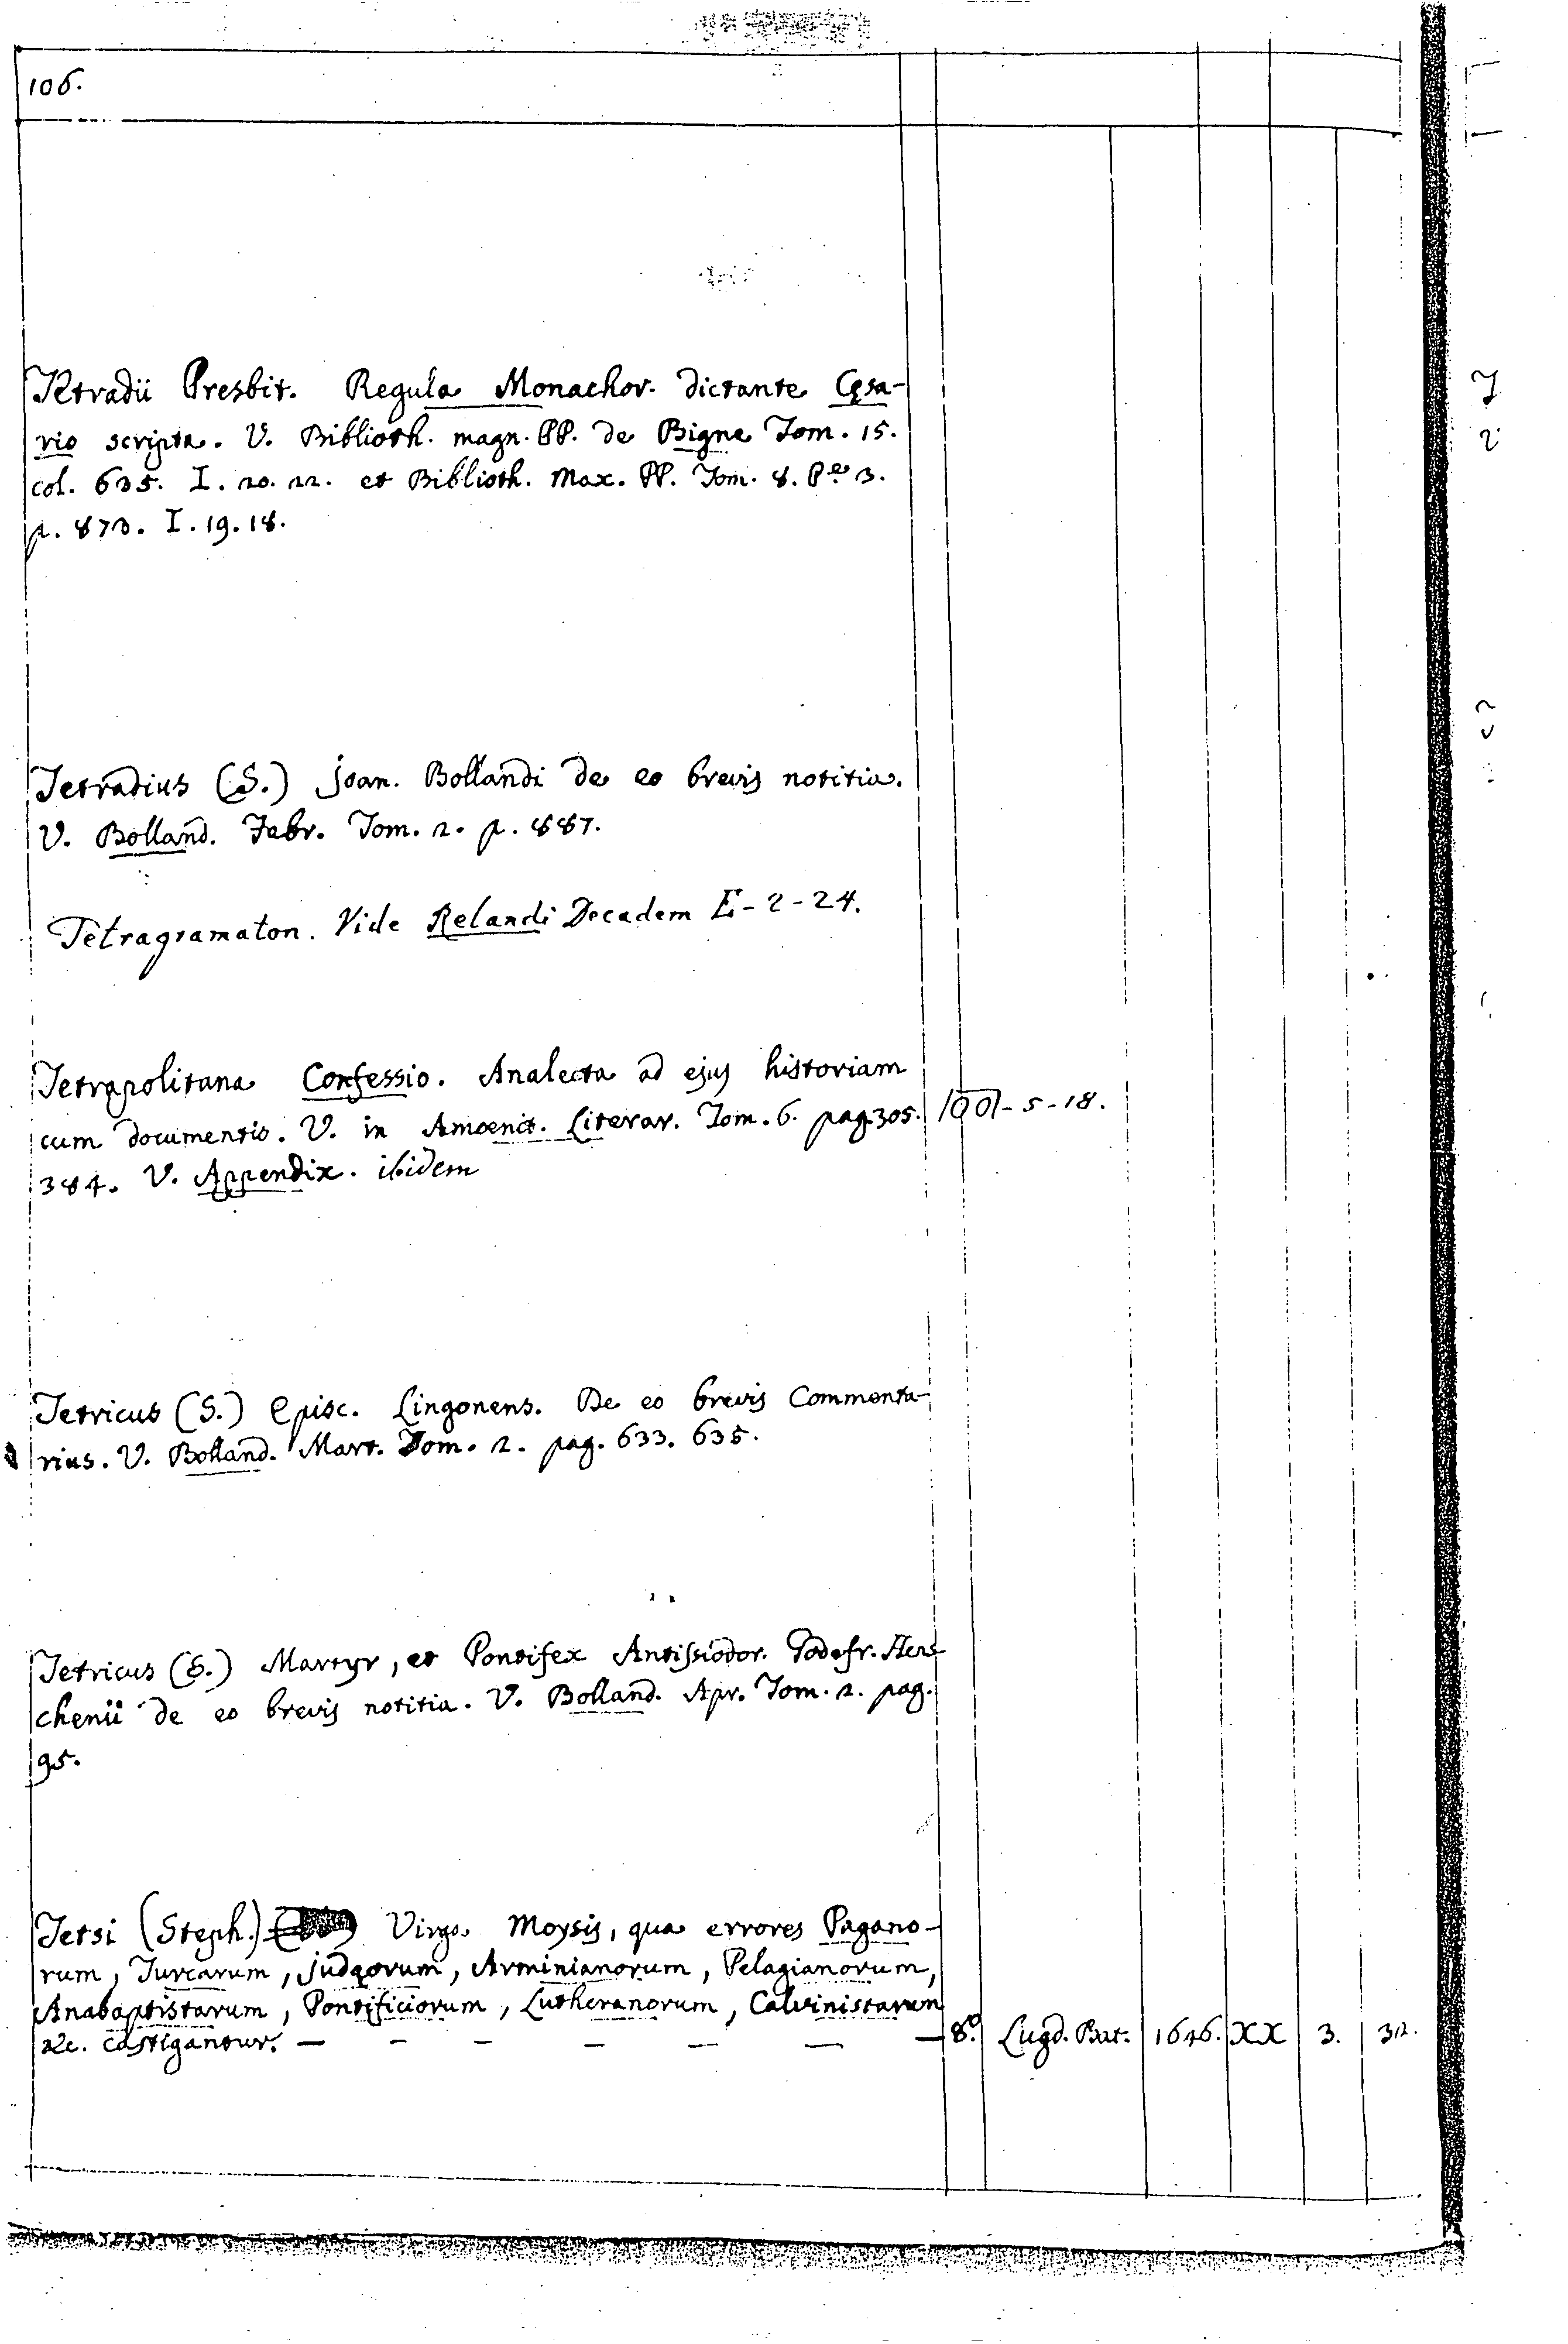 106.
Tetradii Presbit. Regula Monachor. dictante Cęsa-
rio scripta. V. Biblioth. magn. PP. de Bigne Tom. 15.
col. 635. I. 20. 22. et Biblioth. Max. PP. Tom. 8. Pe 3.
p. 873. I. 19. 18.
Tetradius (S.) Joan. Bollandi de eo brevis notitia.
V. Bolland. Febr. Tom. 2. p. 887.
Tetragramaton. Vide Relandi Decadem E-2-24.
Tetrapolitana Confessio. Analecta ad ejus historiam
cum documentis. V. in Amoenit. Literar. Tom. 6. pag. 305. -5-18.
384. V. Appendix. ibidem
Tetricus (S.) Episc. Lingonens. De eo brevis Commenta-
rius. V. Bolland. Mart. Tom. 2. pag. 633. 635.
Tetricus (S.) Martyr, et Pontifex Antissiodor. Godefr. Hens
chenii de eo brevis notitia. V. Bolland. Apr. Tom. 2. pag.
95.
Tetsi (Steph.) Virga Moysis, qua errores Pagano-
rum, Turcarum, Judęorum, Arminianorum, Pelagianorum,
Anabaptistarum, Pontificiorum, Lutheranorum, Calvinistarum
&c. castigantur. — — — — — — — 8º. Lugd. Bat. 1646. XX 3. 32.